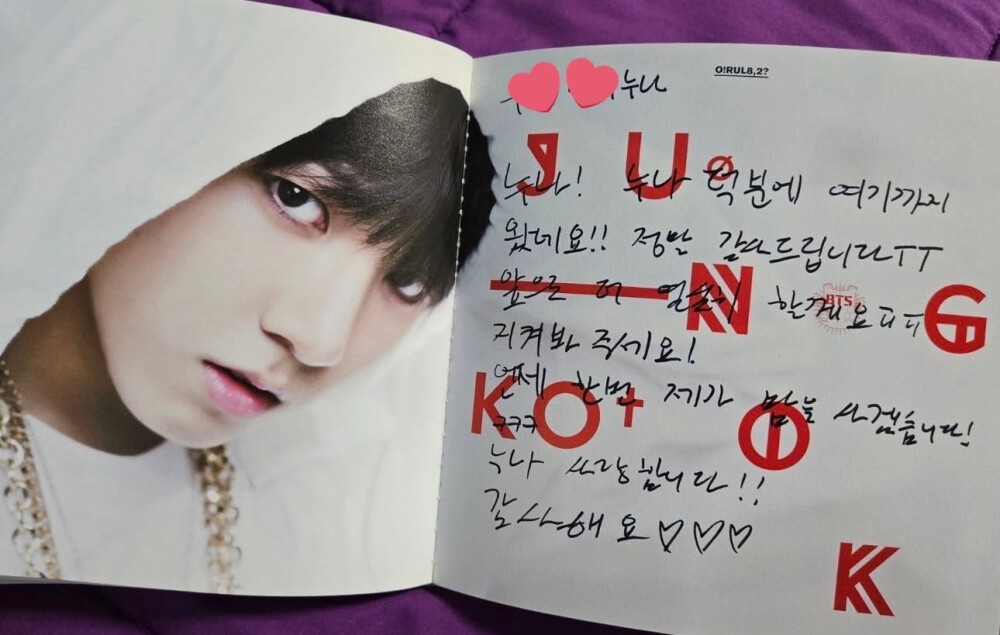 O!RUL8,2?
누나
누나! 누나 덕분에 여기까지
왔네요!! 정말 감사드립니다ㅜㅜ
앞으로 더 열심히 할게요ㅠㅠ
지켜봐 주세요!
언제 한번 제가 밥을 사겠습니다!
ㅋㅋㅋ
누나 사랑합니다!!
감사해요♡♡♡
JUNG
KOOK
BTS